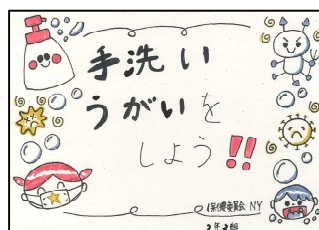 手洗い
うがいを
しよう!!
保健委員会 NY
2年2組